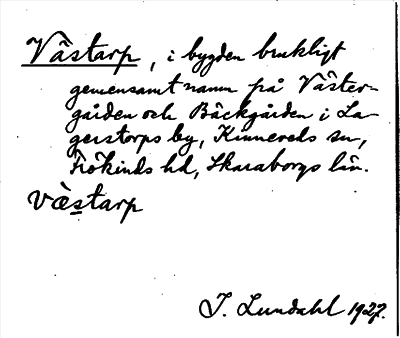 Västarp, i bygden brukligt
gemensamt namn på Väster-
gården och Bäckgården i La-
gerstorps by, Kinneveds sn,
Frökinds hd, Skaraborgs län.
væstarp
I. Lundahl 1927.